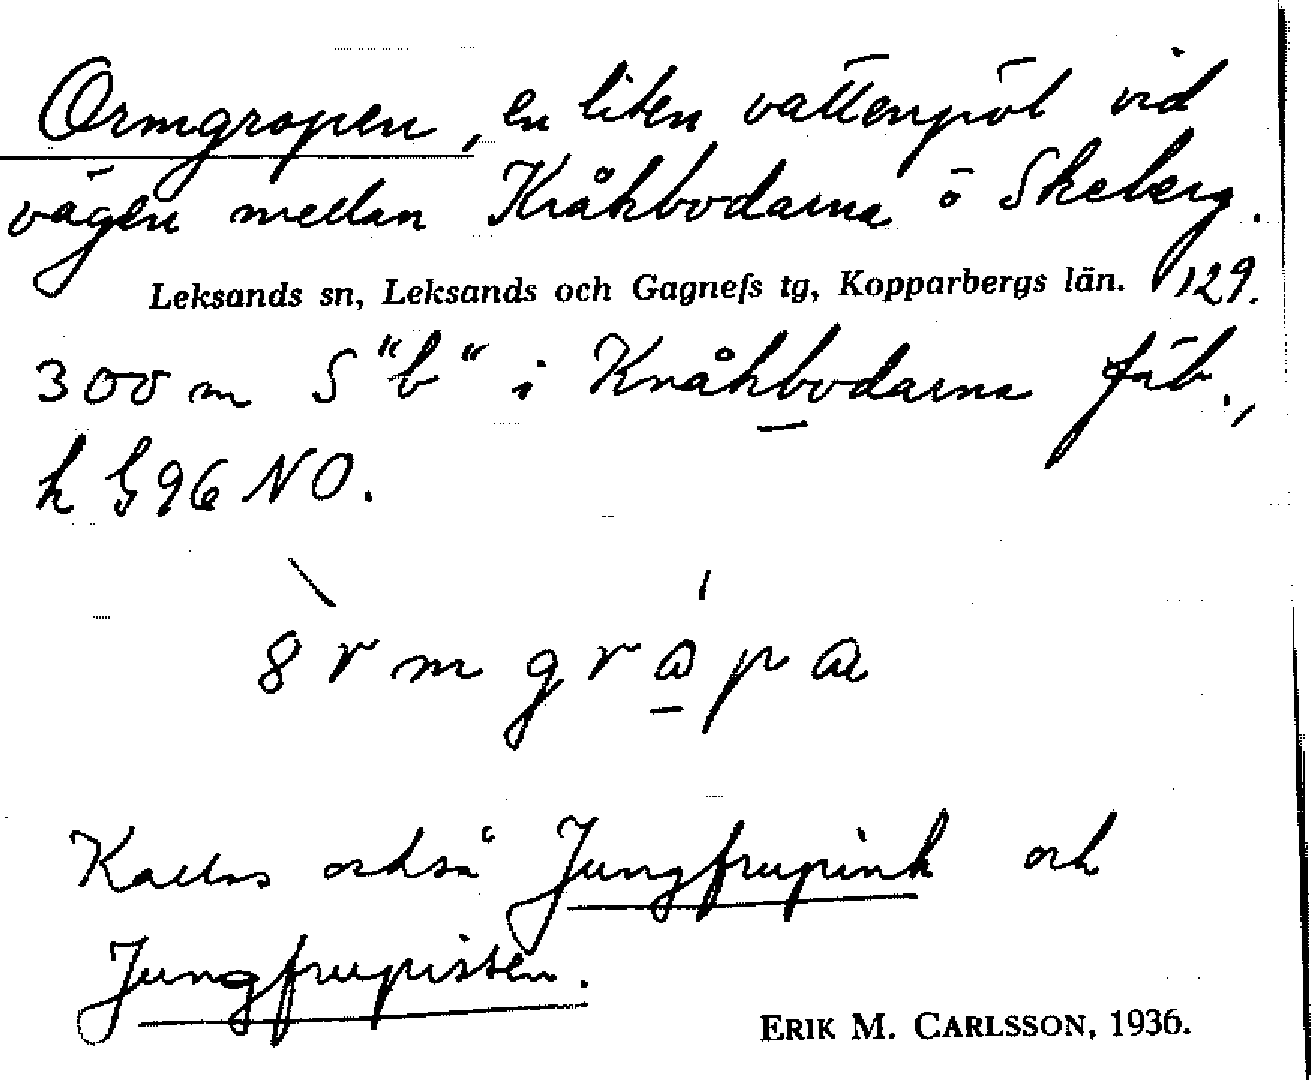 Ormgropen, en liten vattenpöl vid
vägen mellan Kråkbodarna ö Skeberg.
Leksands sn, Leksands och Gagnefs tg, Kopparbergs län. 129.
300 m S "b" i Kråkbodarna fäb.,
k G 96 NO.
8rmgrapa
Kallas också Jungfrupink och
Jungfrupisten.
ERIK M. CARLSSON, 1936.